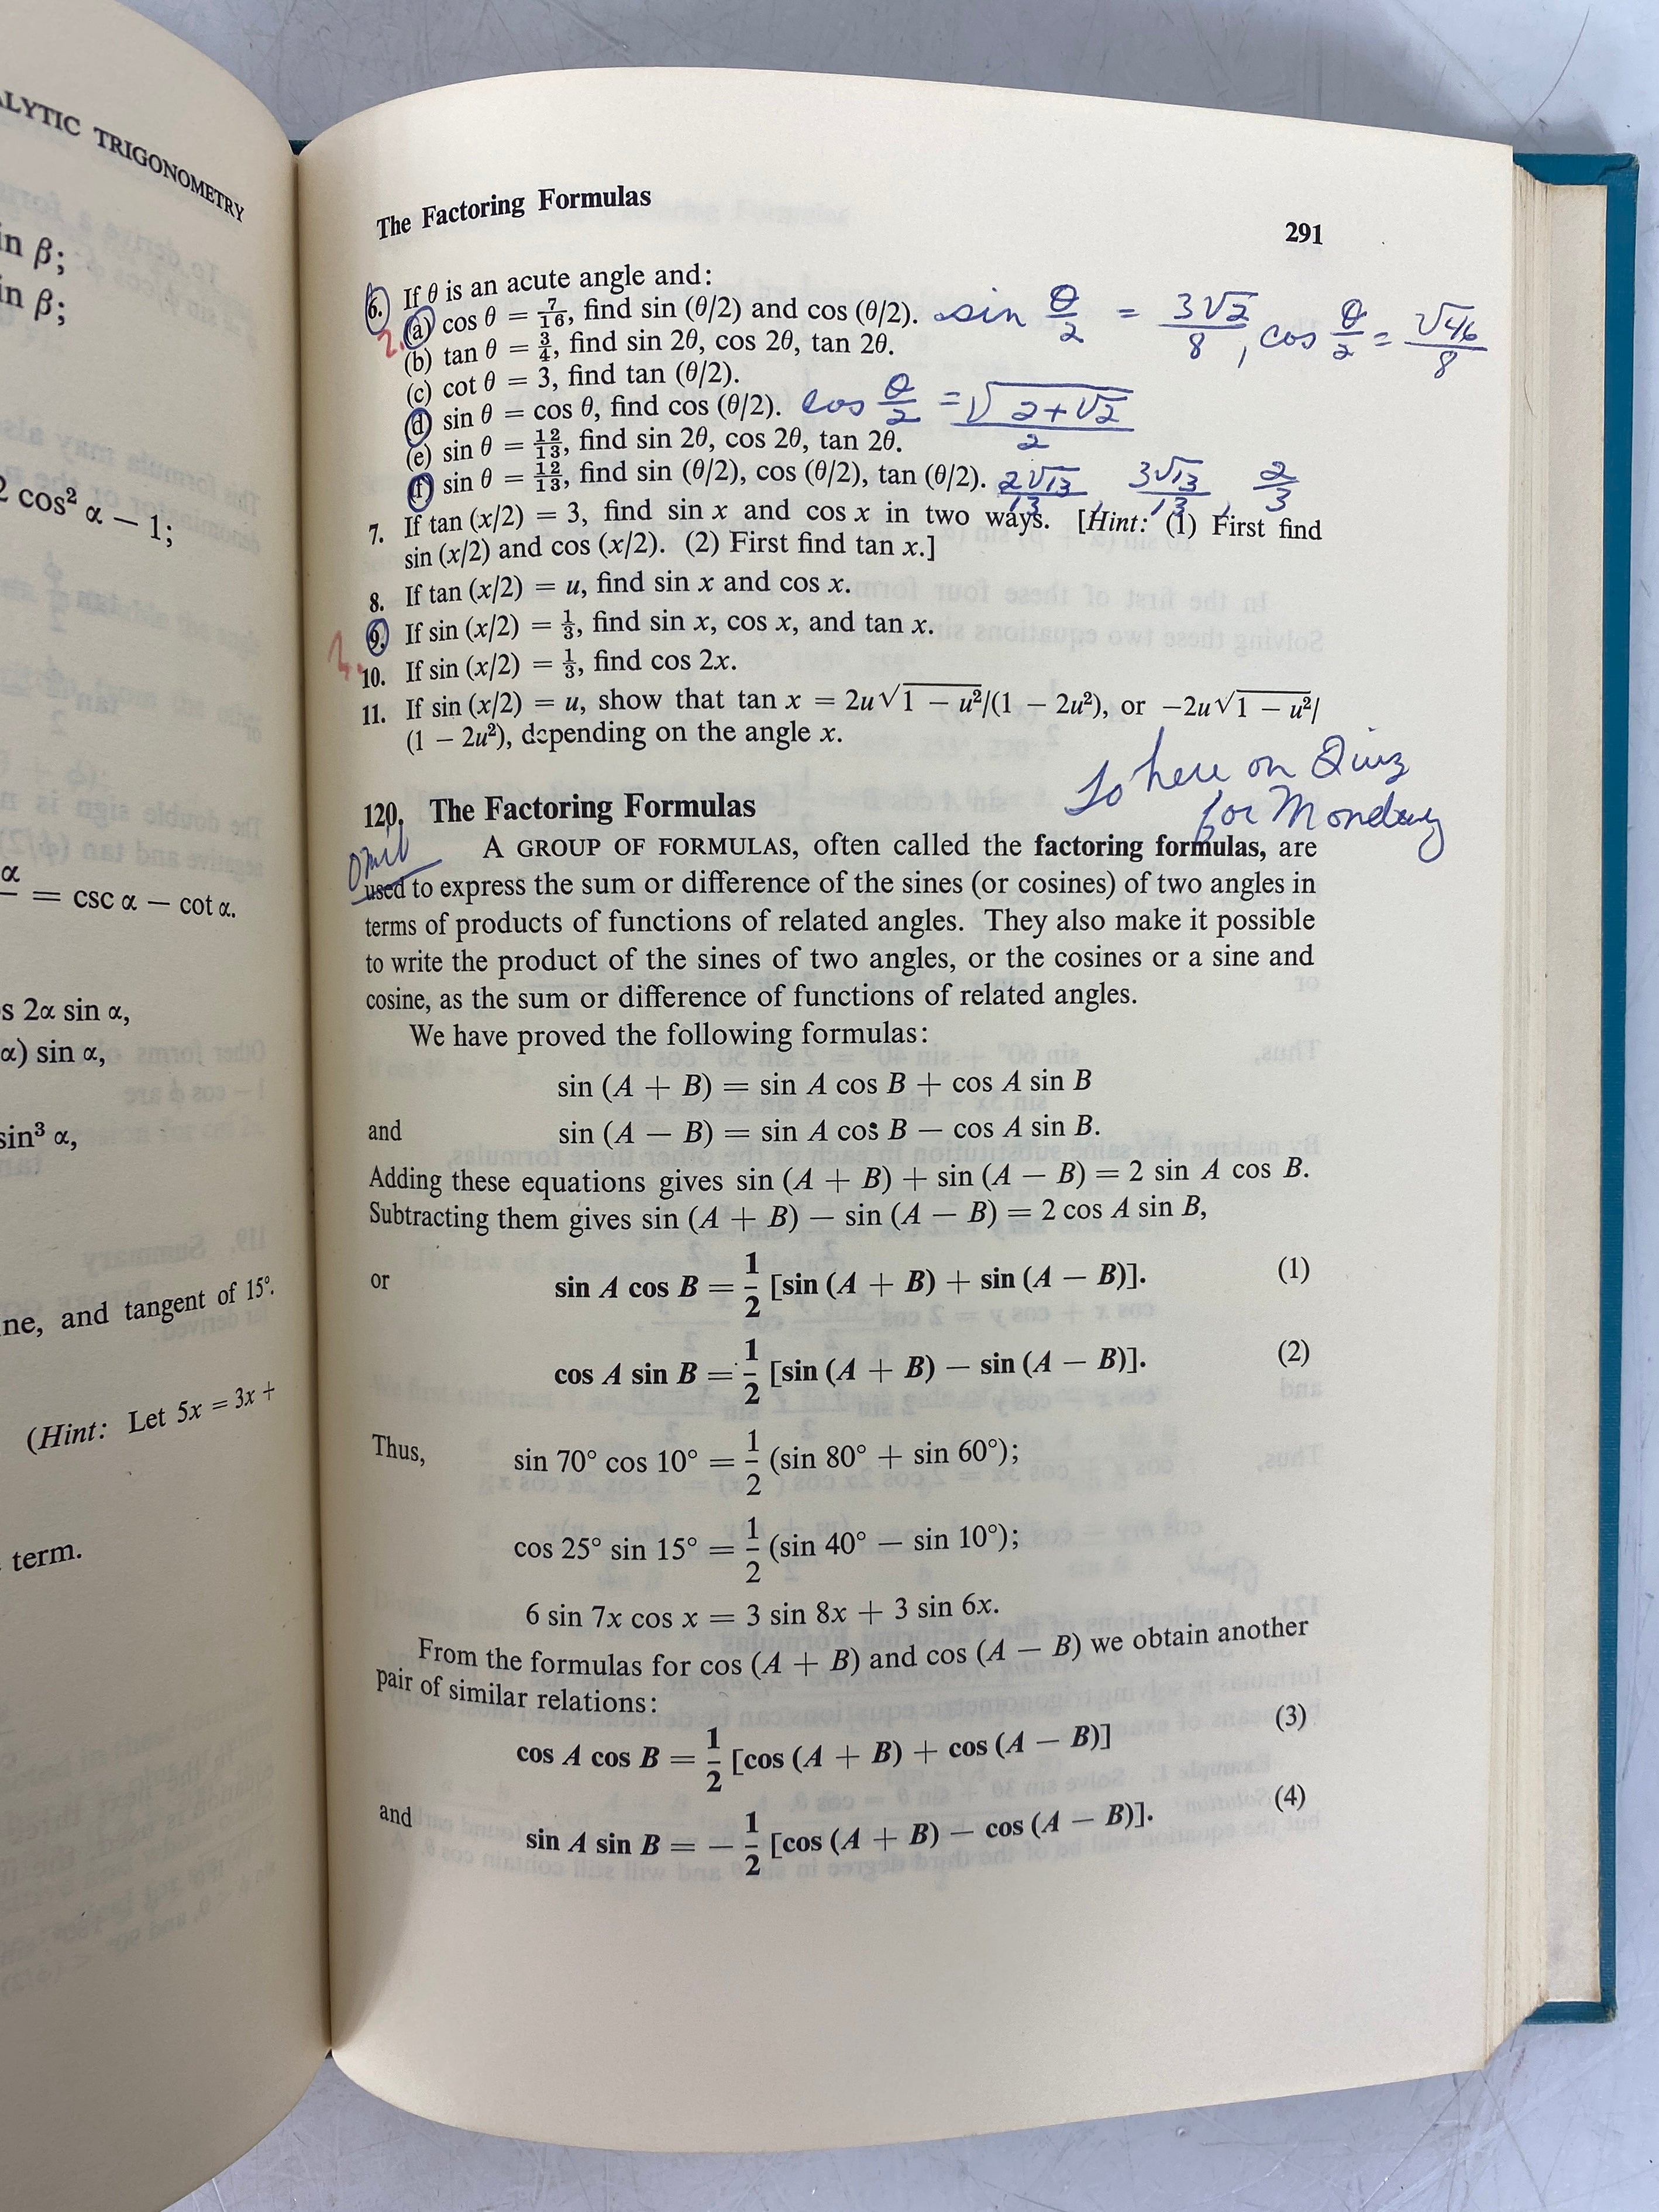 ALYTIC TRIGONOMETRY
in β;
in β;
2 cos² α − 1;
α
— = csc α − cot α.
s 2α sin α,
α) sin α,
sin³ α,
ne, and tangent of 15°.
(Hint: Let 5x = 3x +
term.
The Factoring Formulas
291
6. If θ is an acute angle and:
2. (a) cos θ = 7/16, find sin (θ/2) and cos (θ/2). sin θ/2 = 3√2/8, cos θ/2 = √46/8
(b) tan θ = 3/4, find sin 2θ, cos 2θ, tan 2θ.
(c) cot θ = 3, find tan (θ/2).
(d) sin θ = cos θ, find cos (θ/2). cos θ/2 = √(2+√2)/2
(e) sin θ = 12/13, find sin 2θ, cos 2θ, tan 2θ.
(f) sin θ = 12/13, find sin (θ/2), cos (θ/2), tan (θ/2). 2√13/13, 3√13/13, 2/3
7. If tan (x/2) = 3, find sin x and cos x in two ways. [Hint: (1) First find
sin (x/2) and cos (x/2). (2) First find tan x.]
8. If tan (x/2) = u, find sin x and cos x.
9. If sin (x/2) = 1/3, find sin x, cos x, and tan x.
10. If sin (x/2) = 1/3, find cos 2x.
11. If sin (x/2) = u, show that tan x = 2u√(1 − u²)/(1 − 2u²), or −2u√(1 − u²)/
(1 − 2u²), depending on the angle x.
To here on Quiz
for Monday
120. The Factoring Formulas
Omit
A GROUP OF FORMULAS, often called the factoring formulas, are
used to express the sum or difference of the sines (or cosines) of two angles in
terms of products of functions of related angles. They also make it possible
to write the product of the sines of two angles, or the cosines or a sine and
cosine, as the sum or difference of functions of related angles.
We have proved the following formulas:
sin (A + B) = sin A cos B + cos A sin B
and sin (A − B) = sin A cos B − cos A sin B.
Adding these equations gives sin (A + B) + sin (A − B) = 2 sin A cos B.
Subtracting them gives sin (A + B) − sin (A − B) = 2 cos A sin B,
or sin A cos B = 1/2 [sin (A + B) + sin (A − B)]. (1)
cos A sin B = 1/2 [sin (A + B) − sin (A − B)]. (2)
Thus, sin 70° cos 10° = 1/2 (sin 80° + sin 60°);
cos 25° sin 15° = 1/2 (sin 40° − sin 10°);
6 sin 7x cos x = 3 sin 8x + 3 sin 6x.
From the formulas for cos (A + B) and cos (A − B) we obtain another
pair of similar relations:
cos A cos B = 1/2 [cos (A + B) + cos (A − B)] (3)
and sin A sin B = − 1/2 [cos (A + B) − cos (A − B)]. (4)